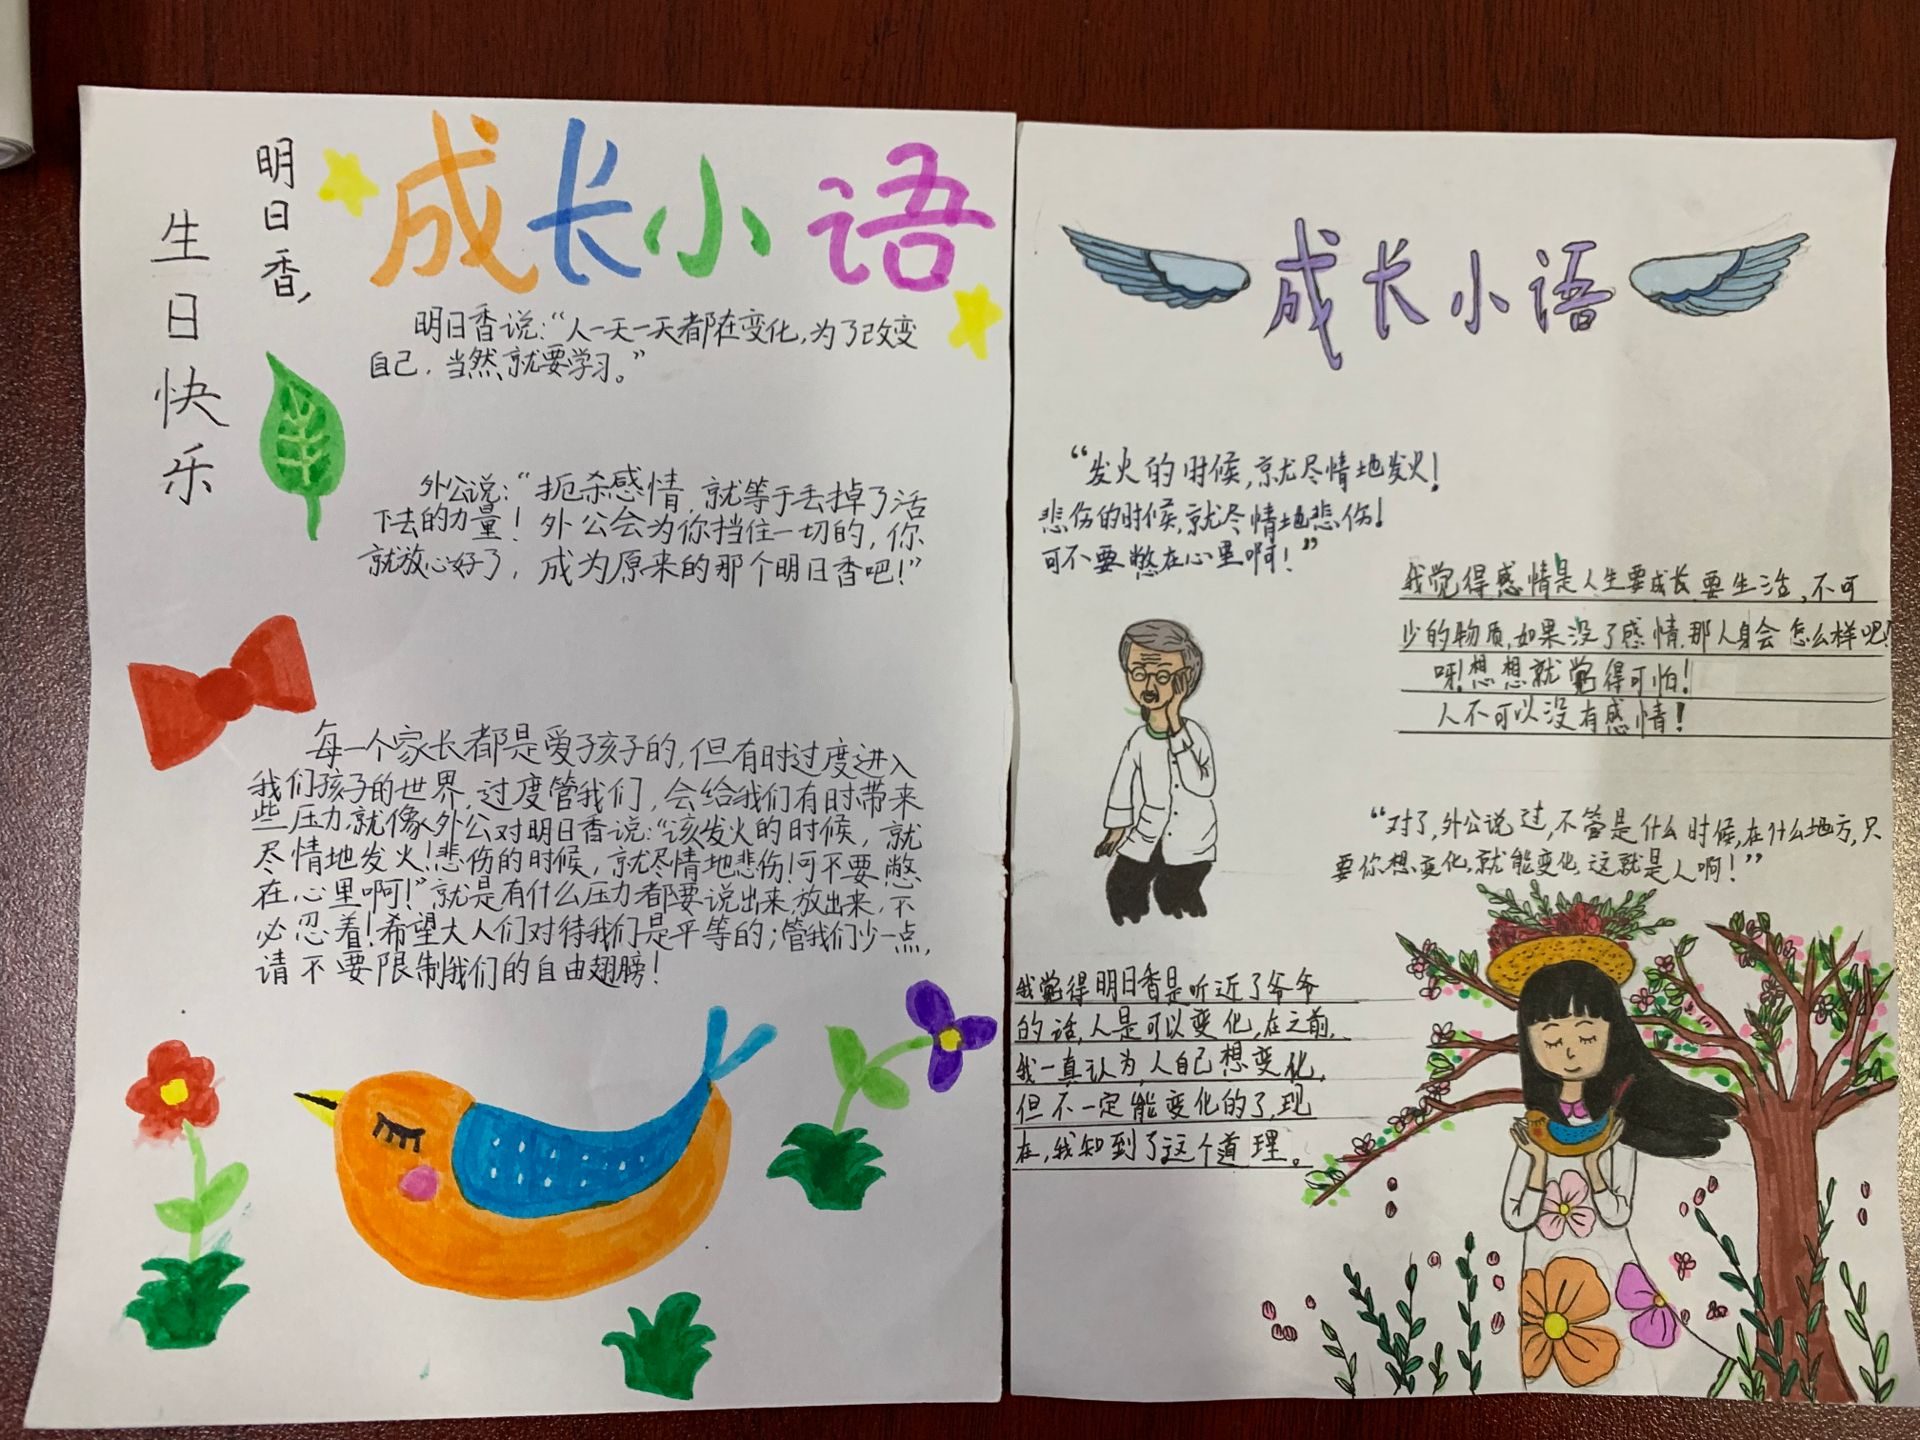 明日香,
生日快乐
成长小语
明日香说:“人一天一天都在变化,为了改变
自己,当然就要学习。”
外公说:“扼杀感情,就等于丢掉了活
下去的力量!外公会为你挡住一切的,你
就放心好了,成为原来的那个明日香吧!”
每一个家长都是爱子孩子的,但有时过度进入
我们孩子的世界,过度管我们,会给我们有时带来
些压力,就像外公对明日香说:“该发火的时候,就
尽情地发火!悲伤的时候,就尽情地悲伤!可不要憋
在心里啊!”就是有什么压力都要说出来,放出来,不
必忍着!希望大人们对待我们是平等的;管我们少一点,
请不要限制我们的自由翅膀!
成长小语
“发火的时候,就尽情地发火!
悲伤的时候,就尽情地悲伤!
可不要憋在心里啊!”
我觉得感情是人生要成长要生活,不可
少的物质,如果没了感情,那人身会怎么样吧!
呀!想想就觉得可怕!
人不可以没有感情!
“对了,外公说过,不管是什么时候,在什么地方,只
要你想变化,就能变化,这就是人啊!”
我觉得明日香是听近了爷爷
的话,人是可以变化,在之前,
我一直认为,人自己想变化,
但不一定能变化的了,现
在,我知到了这个道理。